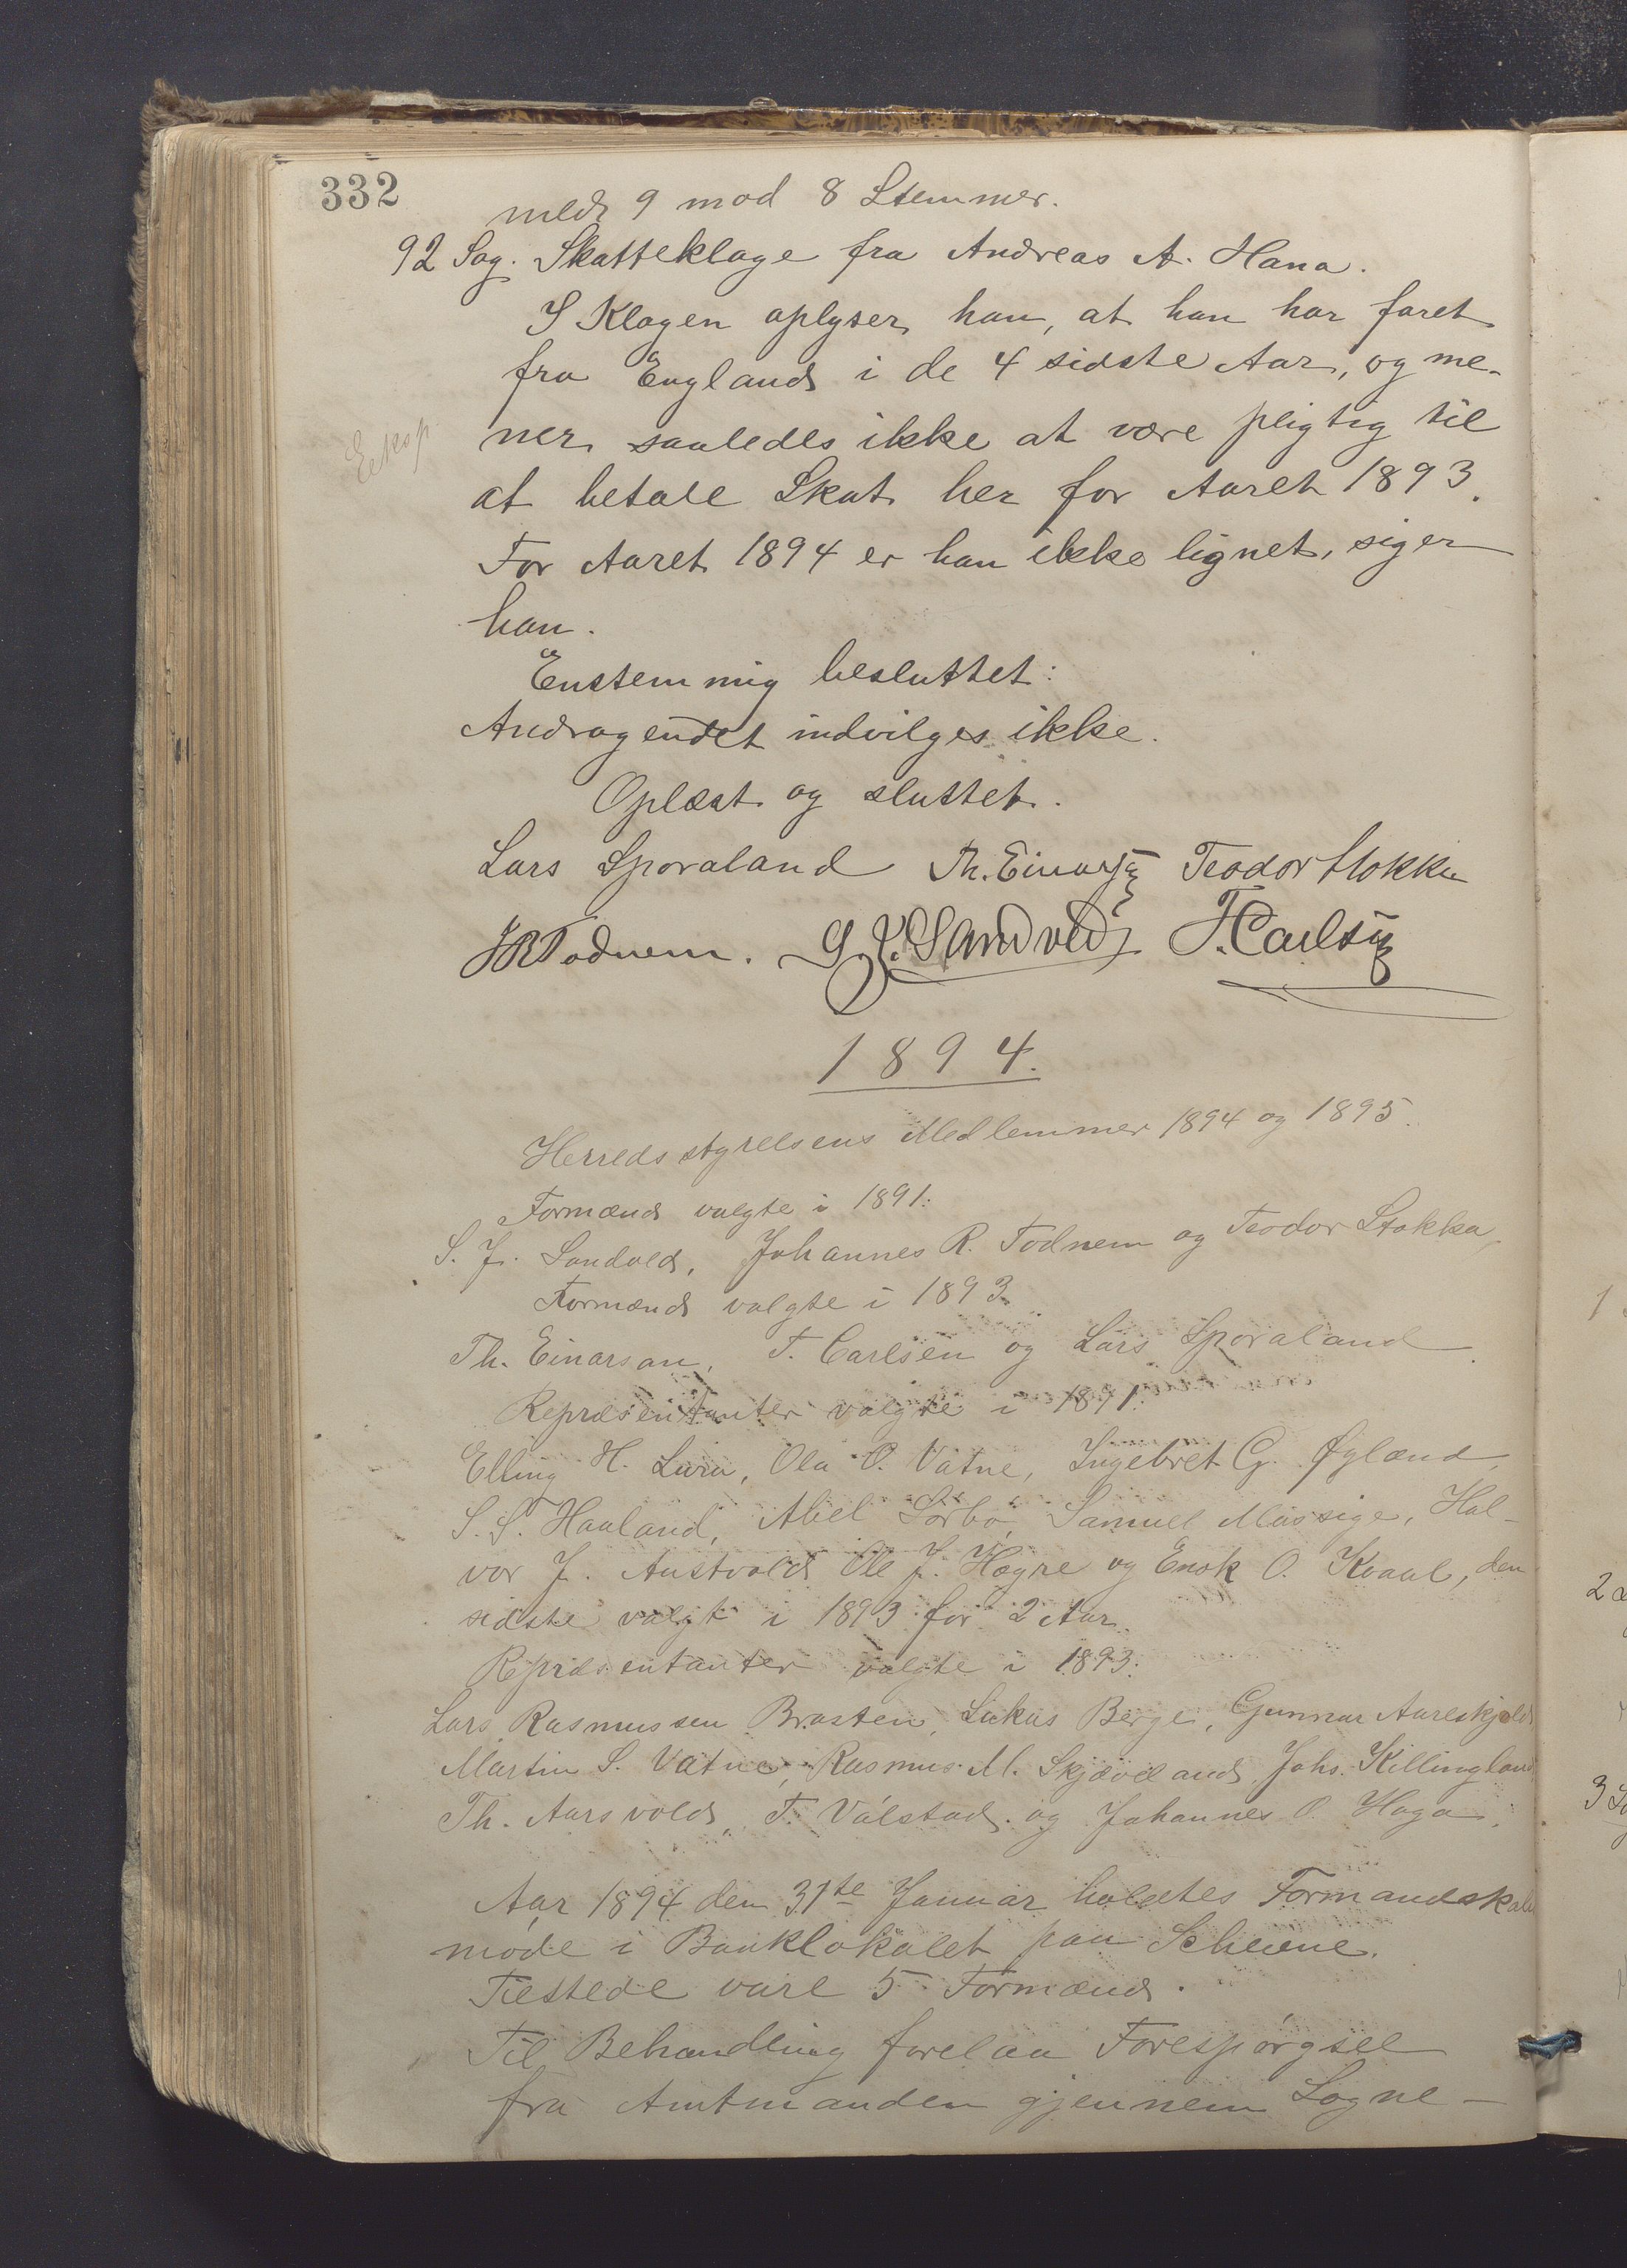 332
med 9 mod 8 Stemmer.
92 Sag. Skatteklage fra Andreas A. Hana.
I Klagen oplyser han, at han har faret
fra England i de 4 sidste Aar, og me-
ner saaledes ikke at være pligtig til
Eksp.
at betale Skat her for Aaret 1893.
For Aaret 1894 er han ikke lignet, siger
han.
Enstemmig besluttet:
Andragendet indvilges ikke.
Oplæst og sluttet.
Lars Sporaland Th. Einarsen Teodor Stokka
JRTodnem. S J. Sandvold T. Carlsen
1894.
Herredsstyrelsens Medlemmer 1894 og 1895.
Formænd valgte i 1891:
S. J. Sandvold, Johannes R. Todnem og Teodor Stokka
Formænd valgte i 1893
Th. Einarsen, T. Carlsen og Lars Sporaland.
Repræsentanter valgte i 1891:
Elling H. Lura, Ola O. Vatne, Ingebret G. Øglænd,
S. S. Haaland, Abel Sørbø, Samuel Aussige, Hal-
vor J. Austvold Ole J. Høgre og Enok O. Kvaal, den
sidste valgt i 1893 for 2 Aar.
Repræsentanter valgte i 1893:
Lars Rasmussen Brasten, Lukas Berge, Gunnar Aareskjold
Martin S. Vatne, Rasmus M. Skjæveland, Johs. Killingland
Th. Aarsvold, T. Válstad og Johannes O. Haga.
Aar 1894 den 31te Januar holdtes Formandskabs
møde i Banklokalet paa Scheene.
Tilstede vare 5 Formænd.
Til Behandling forelaa Forespørgsel
fra Amtmanden gjennem Sogne-